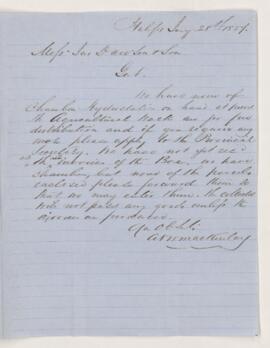 Halifax Jany 28th 1857
Messrs Jas Dawson & Son
Gent.
We have none of
Chambers Hydrostatics on hand at present
The Agricultural Works are for free
distribution and if you require any
more please apply to the Provincial
Secretary. We have not yet recd
the Invoices of the Box, we have
Chambers, but none of the parcels
enclosed please forward them so
that we may enter them. The
will not pass any goods unless the
invoices are produced.
Yr Ob St
A & W MacKinlay